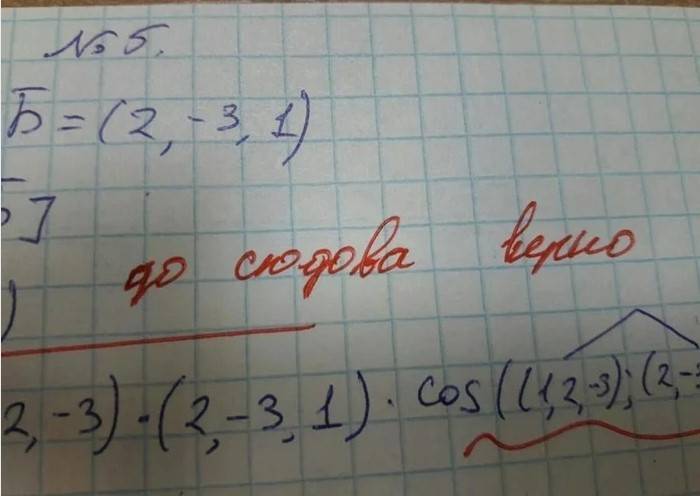 № 5.
Б = (2, -3, 1)
]
до сюдова верно
)
2, -3) · (2, -3, 1) · cos((1, 2, -3); (2, -3